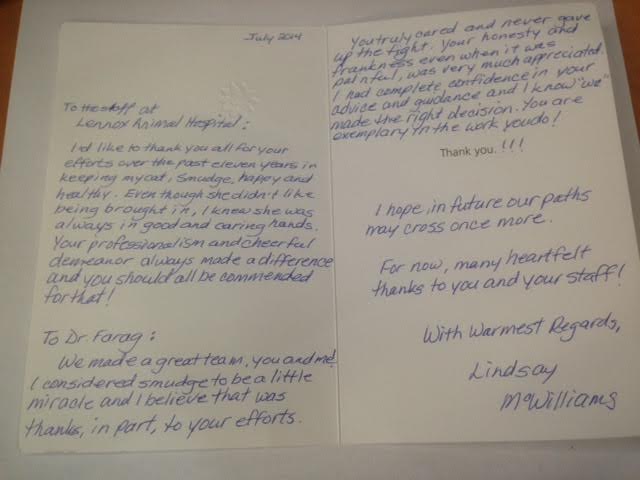 July 2014
To the staff at
Lennox Animal Hospital:
I'd like to thank you all for your
efforts over the past eleven years in
keeping my cat, Smudge, happy and
healthy. Even though she didn't like
being brought in, I knew she was
always in good and caring hands.
Your professionalism and cheerful
demeanor always made a difference
and you should all be commended
for that!
To Dr. Farag:
We made a great team, you and me!
I considered smudge to be a little
miracle and I believe that was
thanks, in part, to your efforts.
You truly cared and never gave
up the fight. Your honesty and
frankness even when it was
painful, was very much appreciated.
I had complete confidence in your
advice and guidance and I know "we"
made the right decision. You are
exemplary in the work you do!
Thank you. !!!
I hope, in future our paths
may cross once more.
For now, many heartfelt
thanks to you and your staff!
With Warmest Regards,
Lindsay
McWilliams